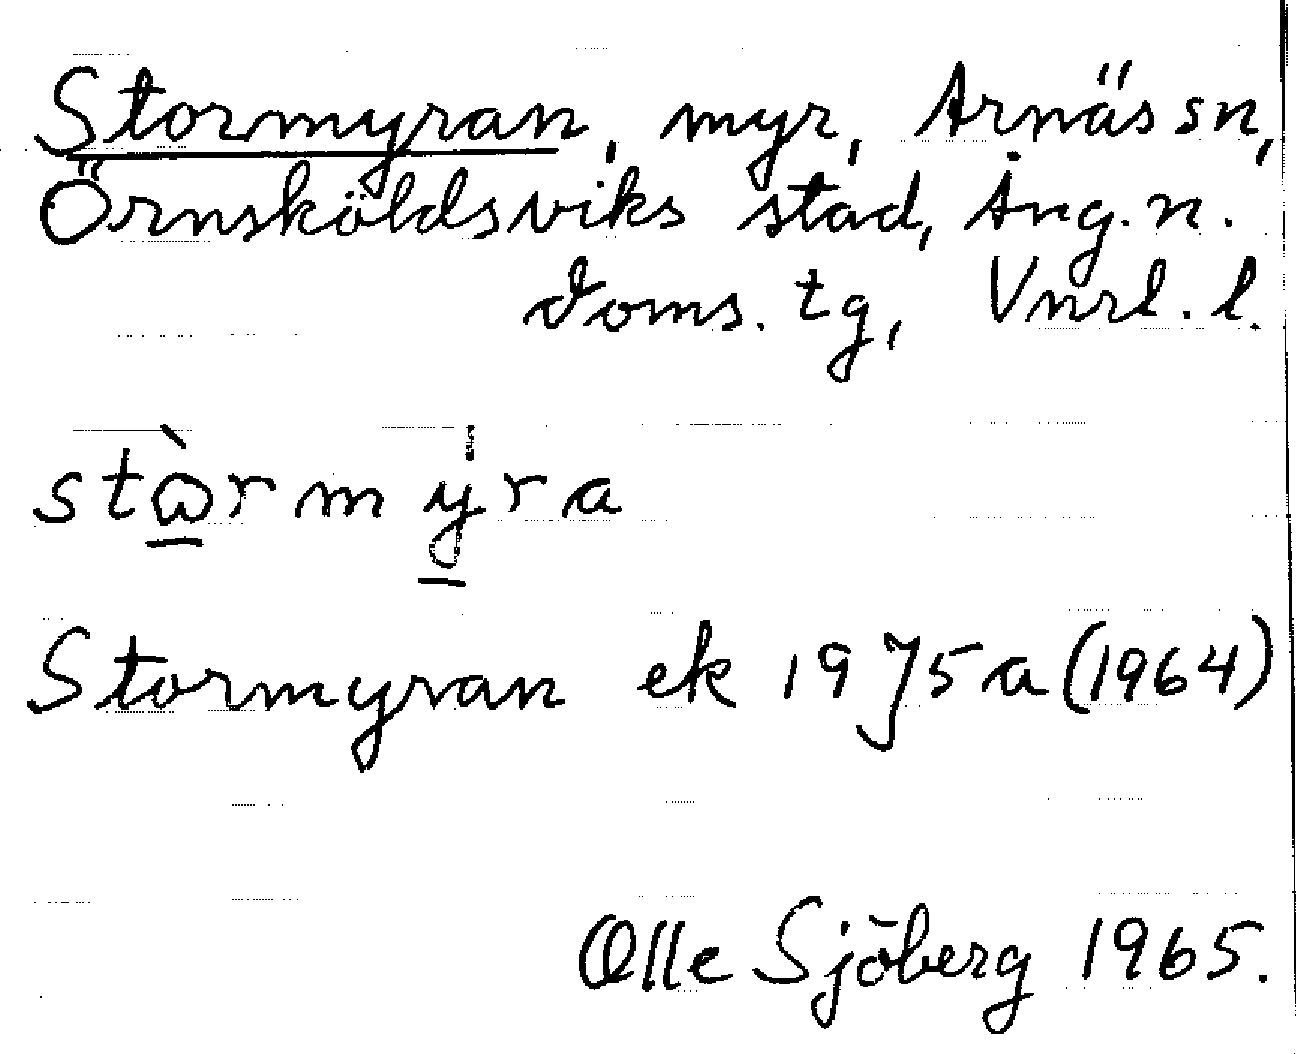 Stormyran, myr, Arnäs sn,
Örnsköldsviks stad, Ång. n.
doms. tg, Vnrl. l.
stɷ̀rmy̍ra
Stormyran ek 19J5a (1964)
Olle Sjöberg 1965.